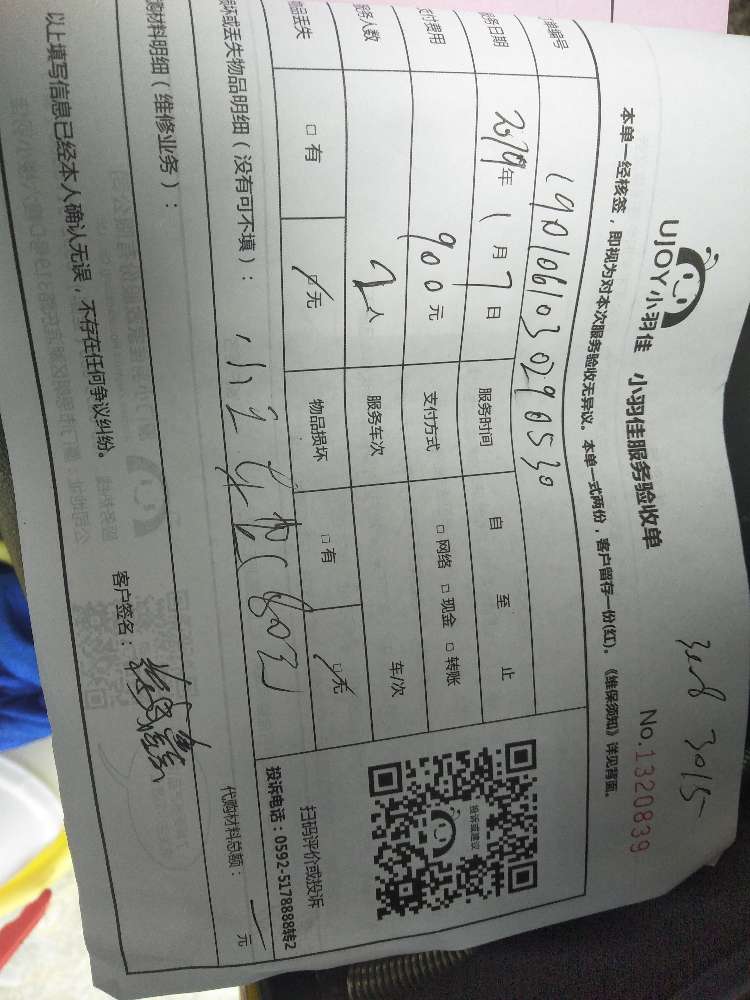 3nd 3015
UJOY小羽佳 小羽佳服务验收单
No.1320839
本单一经核签，即视为对本次服务验收无异议。本单一式两份，客户留存一份(红)。《维保须知》详见背面。
单编号 190106103029 0530
务日期 2019年 1月 7日 服务时间 自 至 止
付费用 900元 支付方式 □网络 □现金 □转账
务人数 2人 服务车次 车/次
品丢失 □有 □无 物品损坏 □有 □无
坏或丢失物品明细（没有可不填）：
扫码评价或投诉
投诉电话：0592-5178888转2
投诉或建议
材料明细（维修业务）：
代购材料总额： 元
以上填写信息已经本人确认无误，不存在任何争议纠纷。
客户签名：